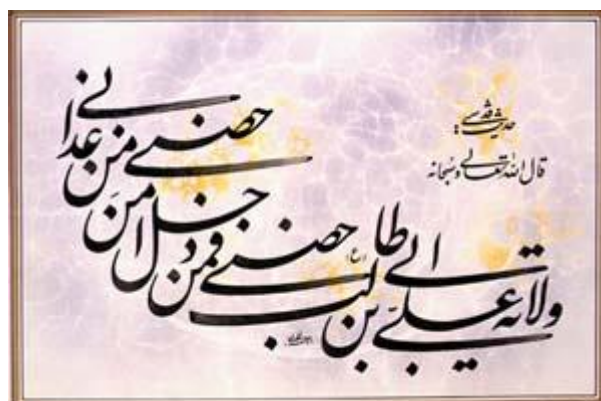 حدیث قدسی:
قال الله تعالی و سبحانه
ولایة علی بن ابی طالب (ع) حصنی فمن دخل حصنی امن من عذابی